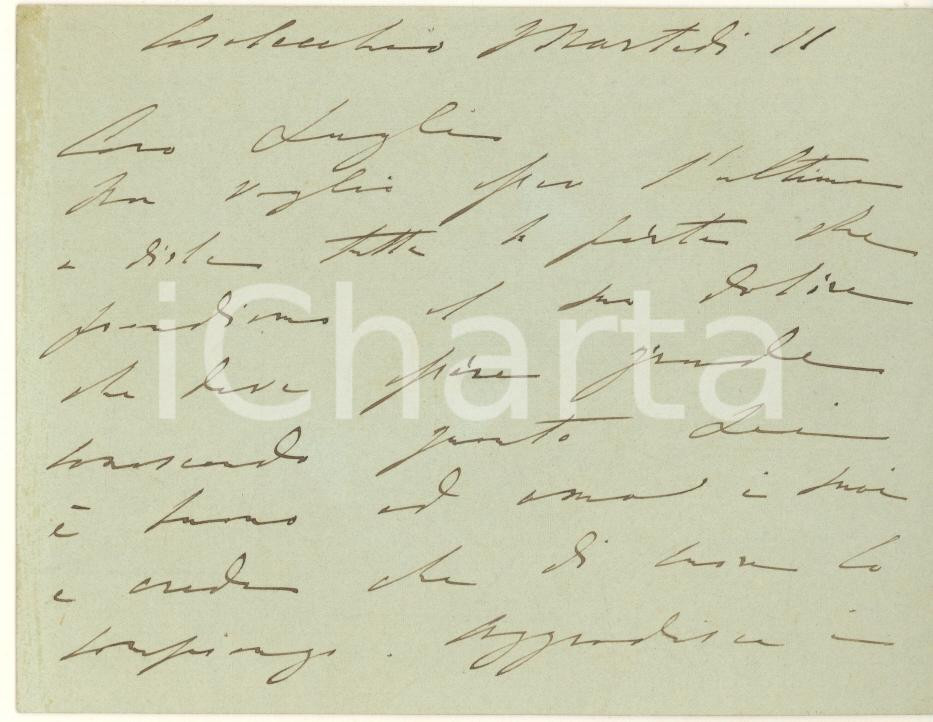 Casalecchio Martedi 11
Caro Luglio
per l'ultima
tutta la parte che
prendiamo al suo dolore
che deve essere grande
conoscendo quanto Lei
è buono ed ama i suoi
e creda che di cuore lo
compiango. Aggradisca i
iCharta